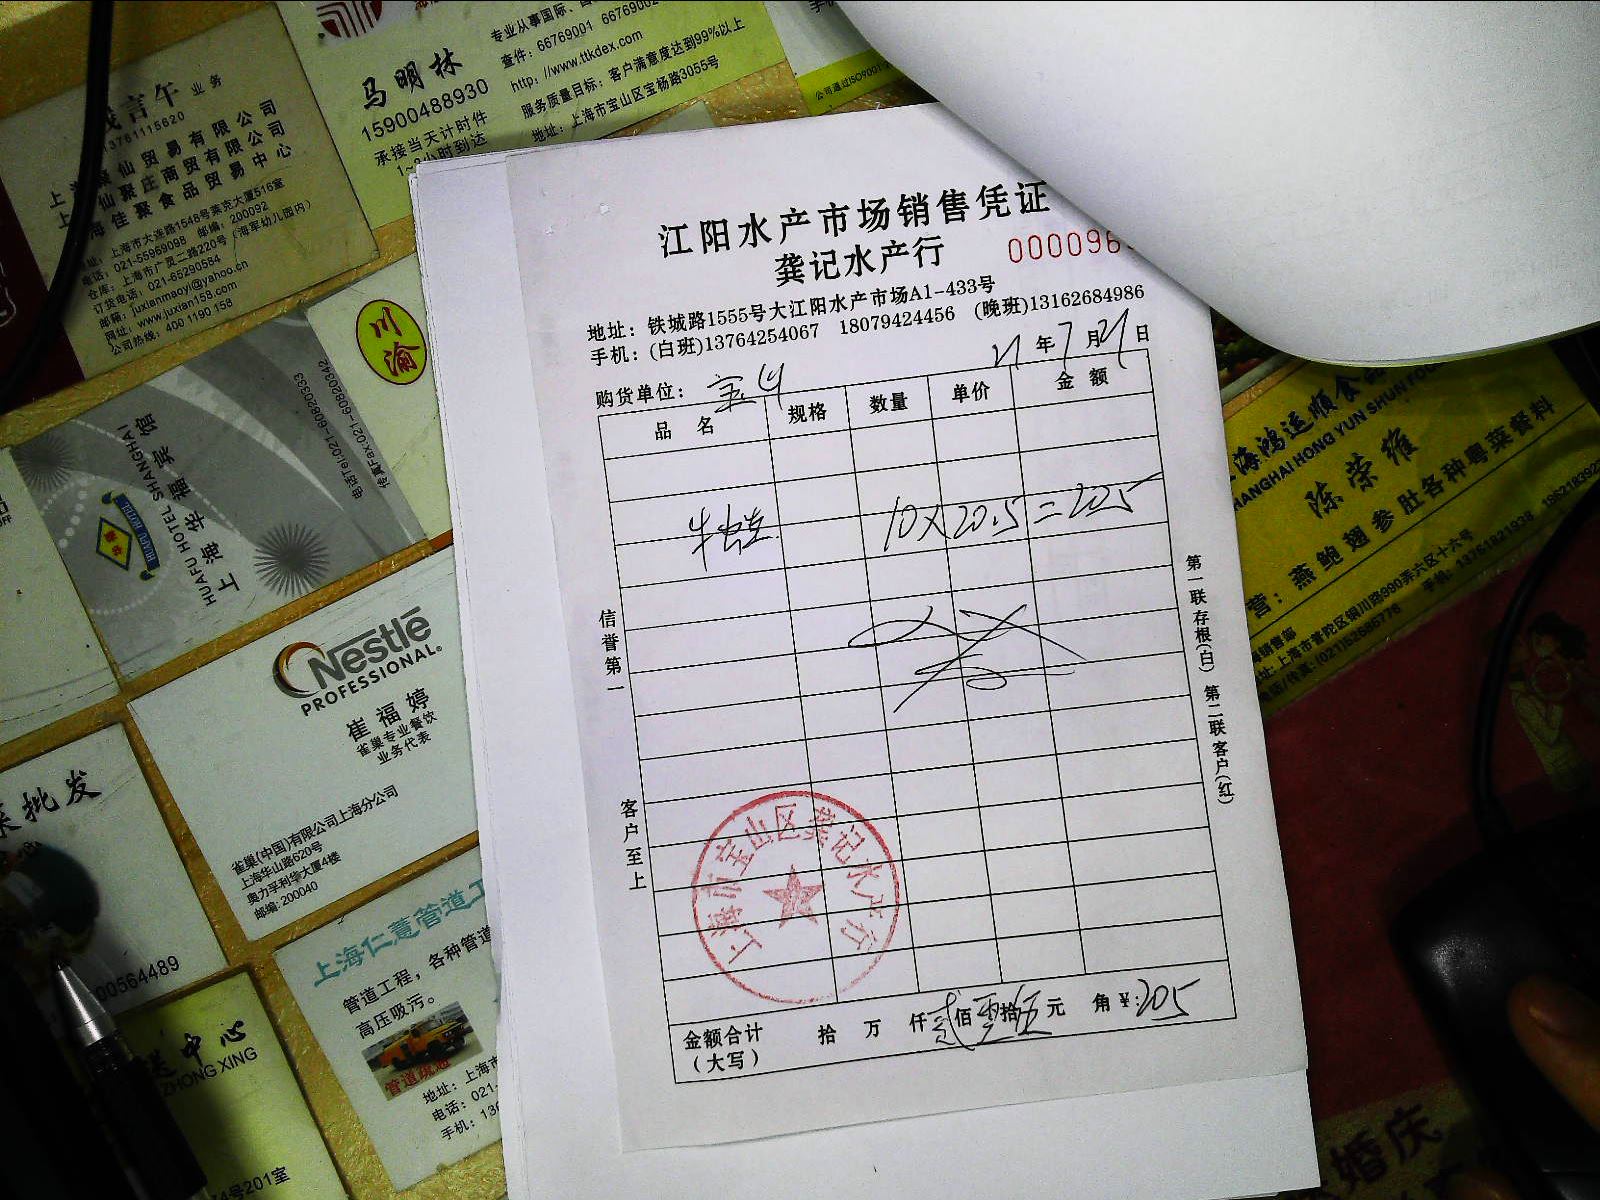 江阳水产市场销售凭证
龚记水产行
地址：铁城路1555号大江阳水产市场A1-433号
手机：(白班)13764254067 18079424456 (晚班)13162684986
21 年 7 月 21 日
购货单位：宝山
品 名 规格 数量 单价 金 额
牛蛙 10×20.5=205
信誉第一
客户至上
第一联存根(白) 第二联客户(红)
上海市宝山区龚记水产行
金额合计 拾 万 仟 贰 佰 零 拾 伍 元 角 ¥:205
（大写）
言午 业务
13761115620
仙贸易有限公司
仙聚庄商贸有限公司
海佳聚食品贸易中心
上海市大连路1548号莱克大厦516室
电话：021-55969098 邮编：200092
仓库：上海市广灵二路220号（海军幼儿园内）
订货电话：021-65290584
邮箱：juxianmaoyi@yahoo.cn
网址：www.juxian158.com
公司热线：400 1190 158
马明林
15900488930
承接当天计时件
小时到达
专业从事国际、
查件：66769001
http://www.ttkdex.com
服务质量目标：客户满意度达到99%以上
地址：上海市宝山区宝杨路3055号
公司通过ISO9001
川渝
上海华福宾馆
HUAFU HOTEL SHANGHAI
电话Tel:021-60820333
传真Fax:021-60820342
Nestlé
PROFESSIONAL.
崔福婷
雀巢专业餐饮
业务代表
雀巢(中国)有限公司上海分公司
上海华山路620号
奥力孚利华大厦4楼
邮编：200040
批发
00564489
上海仁薏管道工
管道工程，各种管道
高压吸污。
管道疏通
地址：上海市
电话：021-
手机：
送中心
ZHONG XING
201室
海鸿运顺食品
SHANGHAI HONG YUN SHUN FOOD
陈荣雍
营：燕鲍翅参肚各种粤菜餐料
销售部
址：上海市普陀区铜川路990弄六区十六号
婚庆